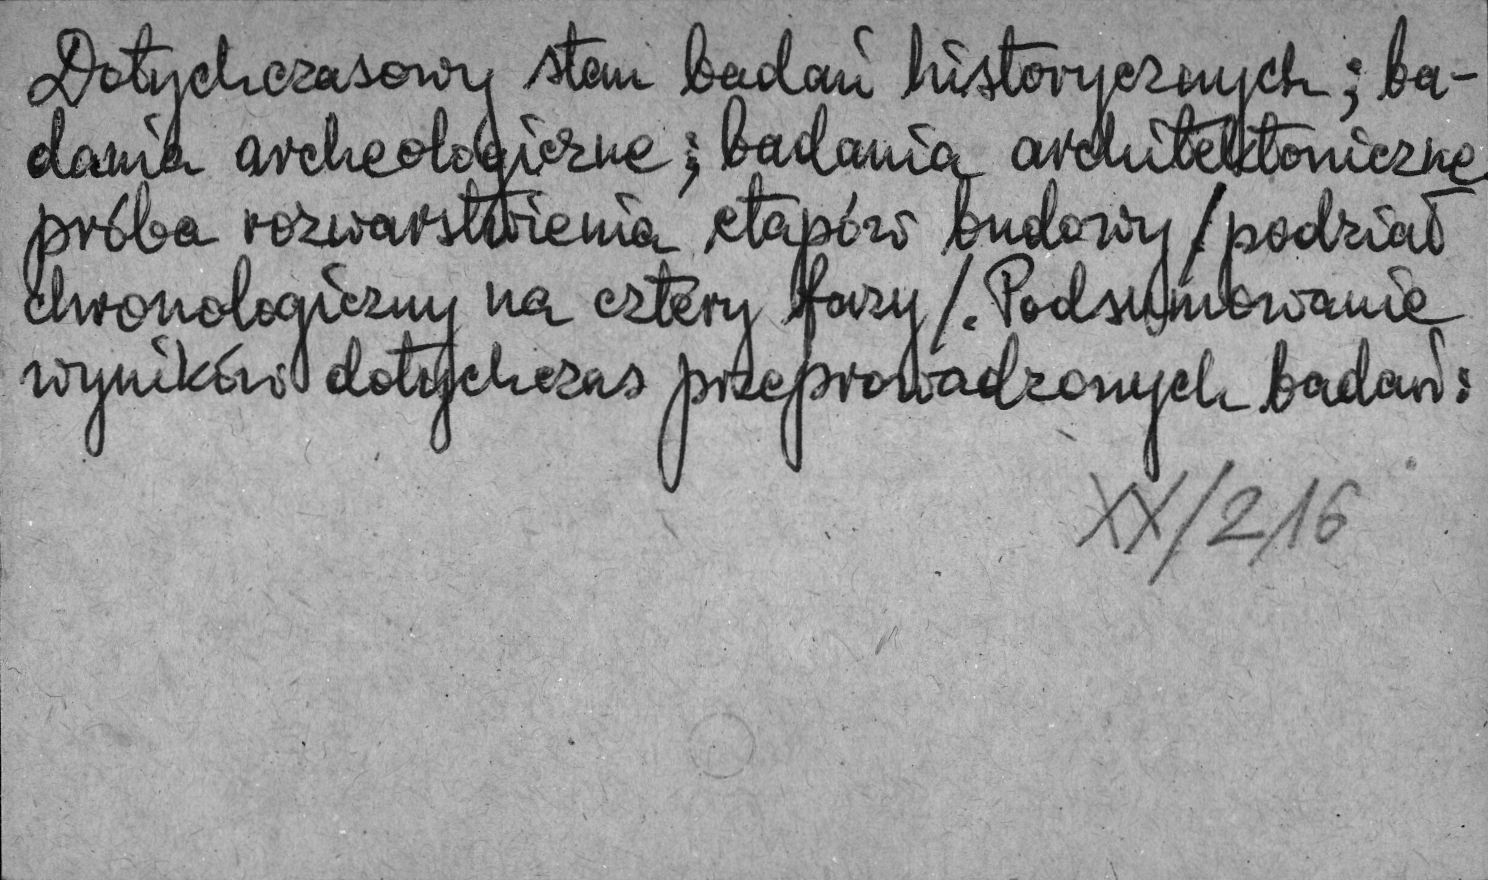 Dotychczasowy stan badań historycznych; ba-
dania archeologiczne; badania architektoniczne
próba rozwarstwienia etapów budowy /podział
chronologiczny na cztery fazy/. Podsumowanie
wyników dotychczas przeprowadzonych badań:
XX/216